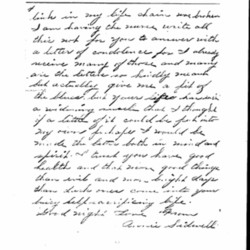 link in my life chain was broken
I am having the nurse write all
this not for you to answer with
a letter of condolence for I already
receive many of those and many
are the letters so kindly meant
but actually give me a fit of
the blues, but your letter
a widening that I thought
if a little of it could be put into
my own perhaps I would be
made the better both in mind and
spirit. I trust you have good
health and that more good things
than evils and more bright days
than dark ones come into your
busy self-sacrificing life.
Good night Love from
Annie